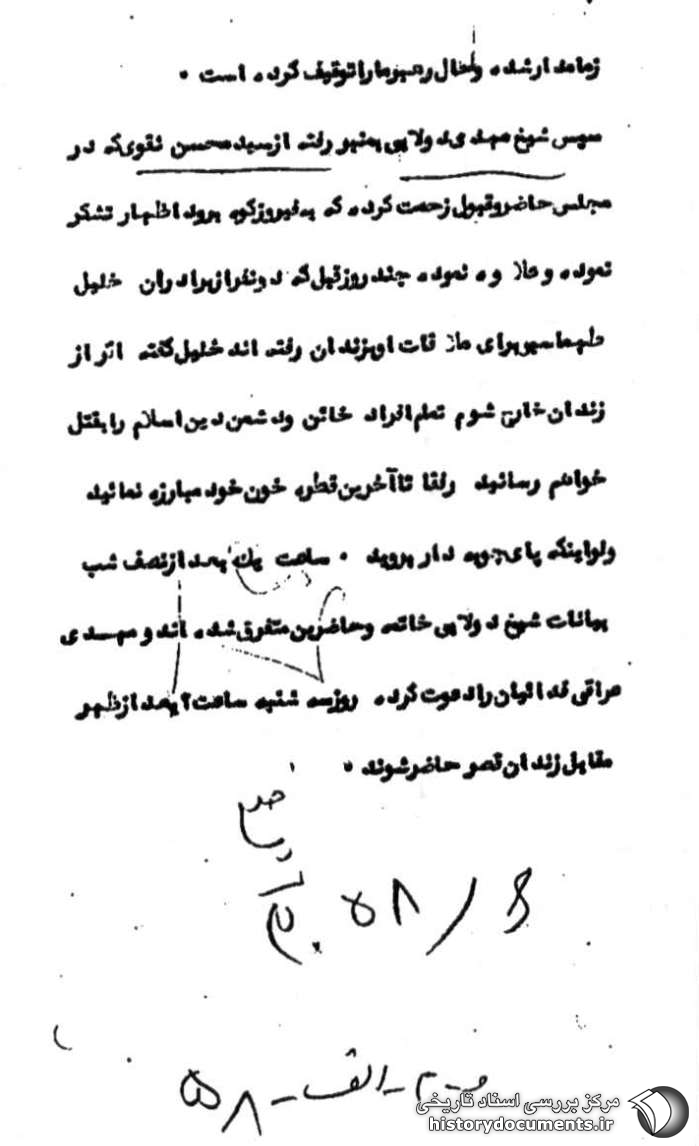 زمامدار شده و حال رهبر ما را توقیف کرده است .
سپس شیخ مهدی دولابی به منبر رفته از سید محسن نقوی که در
مجلس حاضر و قبول زحمت کرده که به فیروزکوه برود اظهار تشکر
نموده و علاوه نموده چند روز قبل که دو نفر از برادران خلیل
طهماسبی برای ملاقات او بزندان رفته اند خلیل گفته اگر از
زندان خارج شوم تمام افراد خائن و دشمن دین اسلام را بقتل
خواهم رسانید رفقا تا آخرین قطره خون خود مبارزه نمائید
ولو اینکه پای چوبه دار بروید . ساعت یک بعد از نصف شب
بیانات شیخ دولابی خاتمه و حاضرین متفرق شده اند و مهدی
عراقی فدائیان را دعوت کرده روز سه شنبه ساعت ۲ بعد از ظهر
مقابل زندان قصر حاضر شوند .
الف - ۵۸
مرکز بررسی اسناد تاریخی
historydocuments.ir